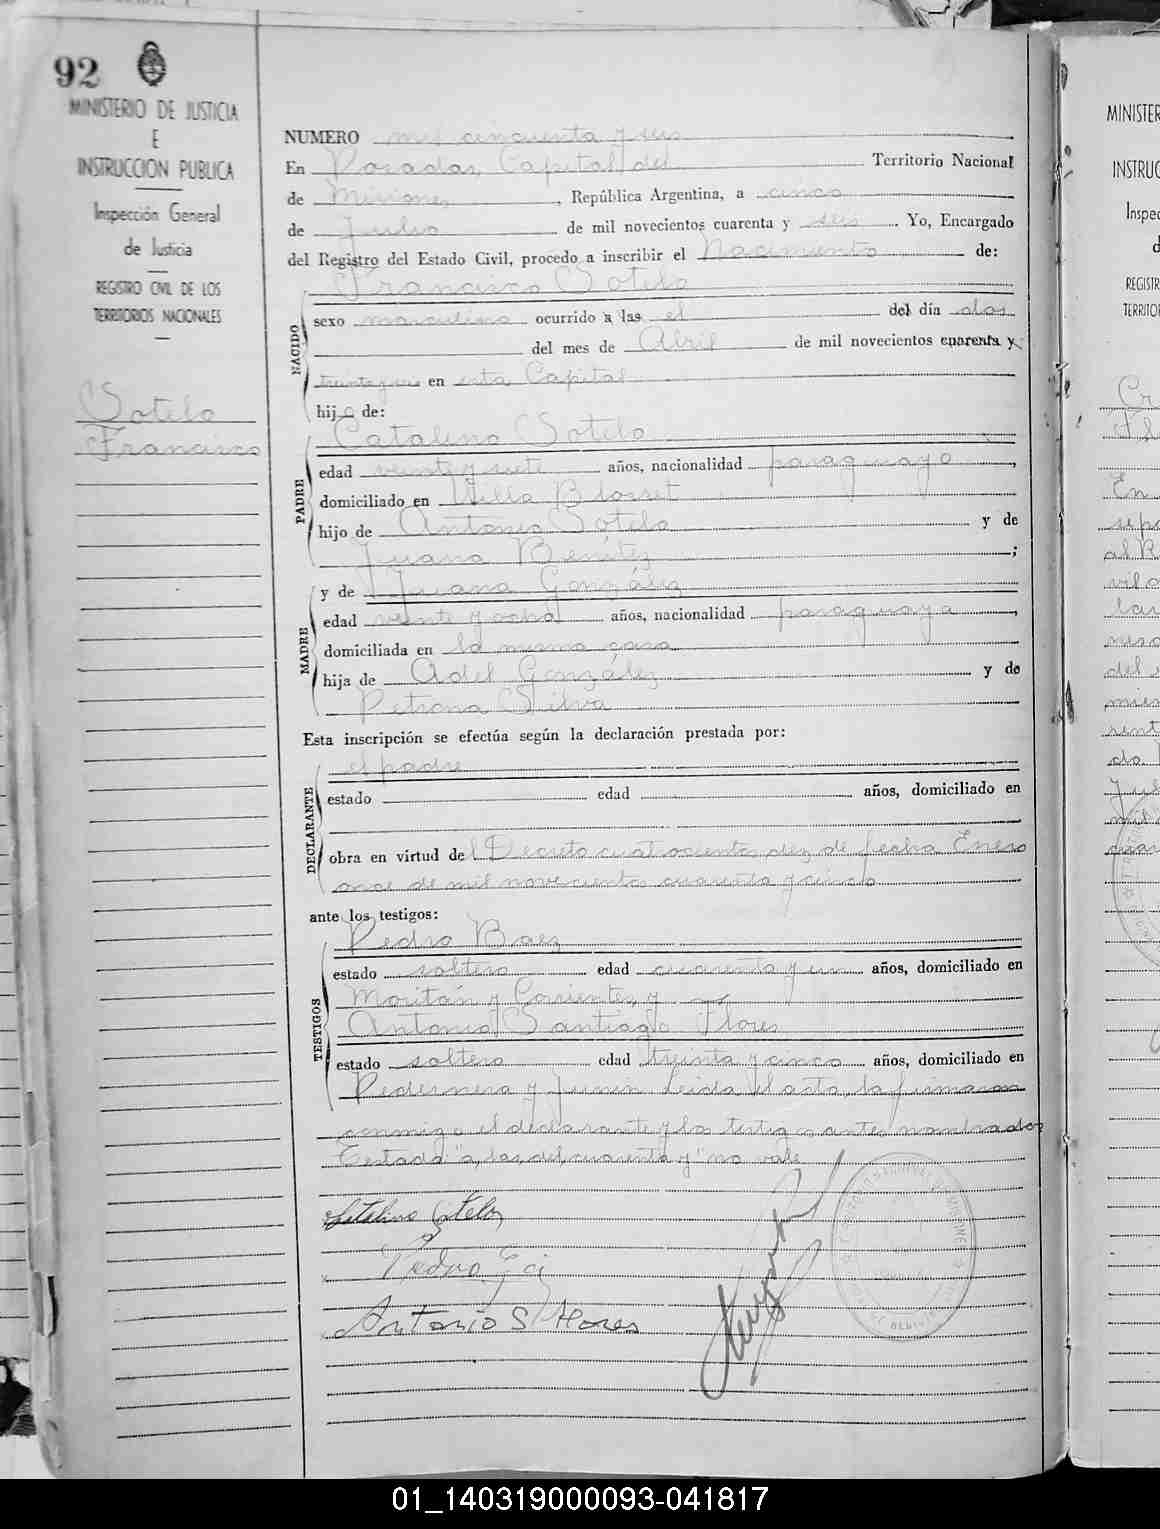 92
MINISTERIO DE JUSTICIA
E
INSTRUCCION PUBLICA
Inspección General
de Justicia
REGISTRO CIVIL DE LOS
TERRITORIOS NACIONALES
Sotelo
Francisco
NUMERO mil cincuenta y seis
En Posadas, Capital del Territorio Nacional
de Misiones, República Argentina, a cinco
de Julio de mil novecientos cuarenta y seis. Yo, Encargado
del Registro del Estado Civil, procedo a inscribir el Nacimiento de:
NACIDO
Francisco Sotelo
sexo masculino ocurrido a las el del día dos
del mes de Abril de mil novecientos cuarenta y
treinta y seis en esta Capital
hijo de:
PADRE
Catalino Sotelo
edad veinte y siete años, nacionalidad paraguayo,
domiciliado en Villa Blosset
hijo de Antonio Sotelo y de
Juana Benítez;
MADRE
y de Juana González
edad veinte y ocho años, nacionalidad paraguaya,
domiciliada en la misma casa
hija de Adel González y de
Petrona Silva
Esta inscripción se efectúa según la declaración prestada por:
DECLARANTE
el padre
estado edad años, domiciliado en
obra en virtud del Decreto cuatrocientos diez de fecha Enero
once de mil novecientos cuarenta y cinco
ante los testigos:
TESTIGOS
Pedro Baez
estado soltero edad cuarenta y un años, domiciliado en
Moritán y Corrientes y
Antonio Santiago Flores
estado soltero edad treinta y cinco años, domiciliado en
Pedernera y Junin leida el acta, la firmaron
conmigo el declarante y los testigos antes nombrados
Testado "a, las, del, cuarenta y" no vale
Catalino Sotelo
Pedro
Antonio S Flores
MINISTER
INSTRUC
Inspec
d
REGISTR
TERRITOR
01_140319000093-041817